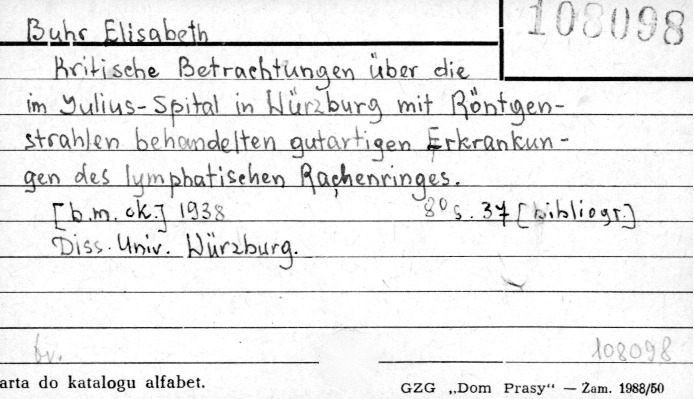 108098
Buhr Elisabeth
Kritische Betrachtungen über die
im Julius-Spital in Würzburg mit Röntgen-
strahlen behandelten gutartigen Erkrankun-
gen des lymphatischen Rachenringes.
[b.m. ok.] 1938 8° s. 37 [bibliogr.]
Diss. Univ. Würzburg.
bv. 108098
arta do katalogu alfabet. GZG „Dom Prasy“ — Zam. 1988/50